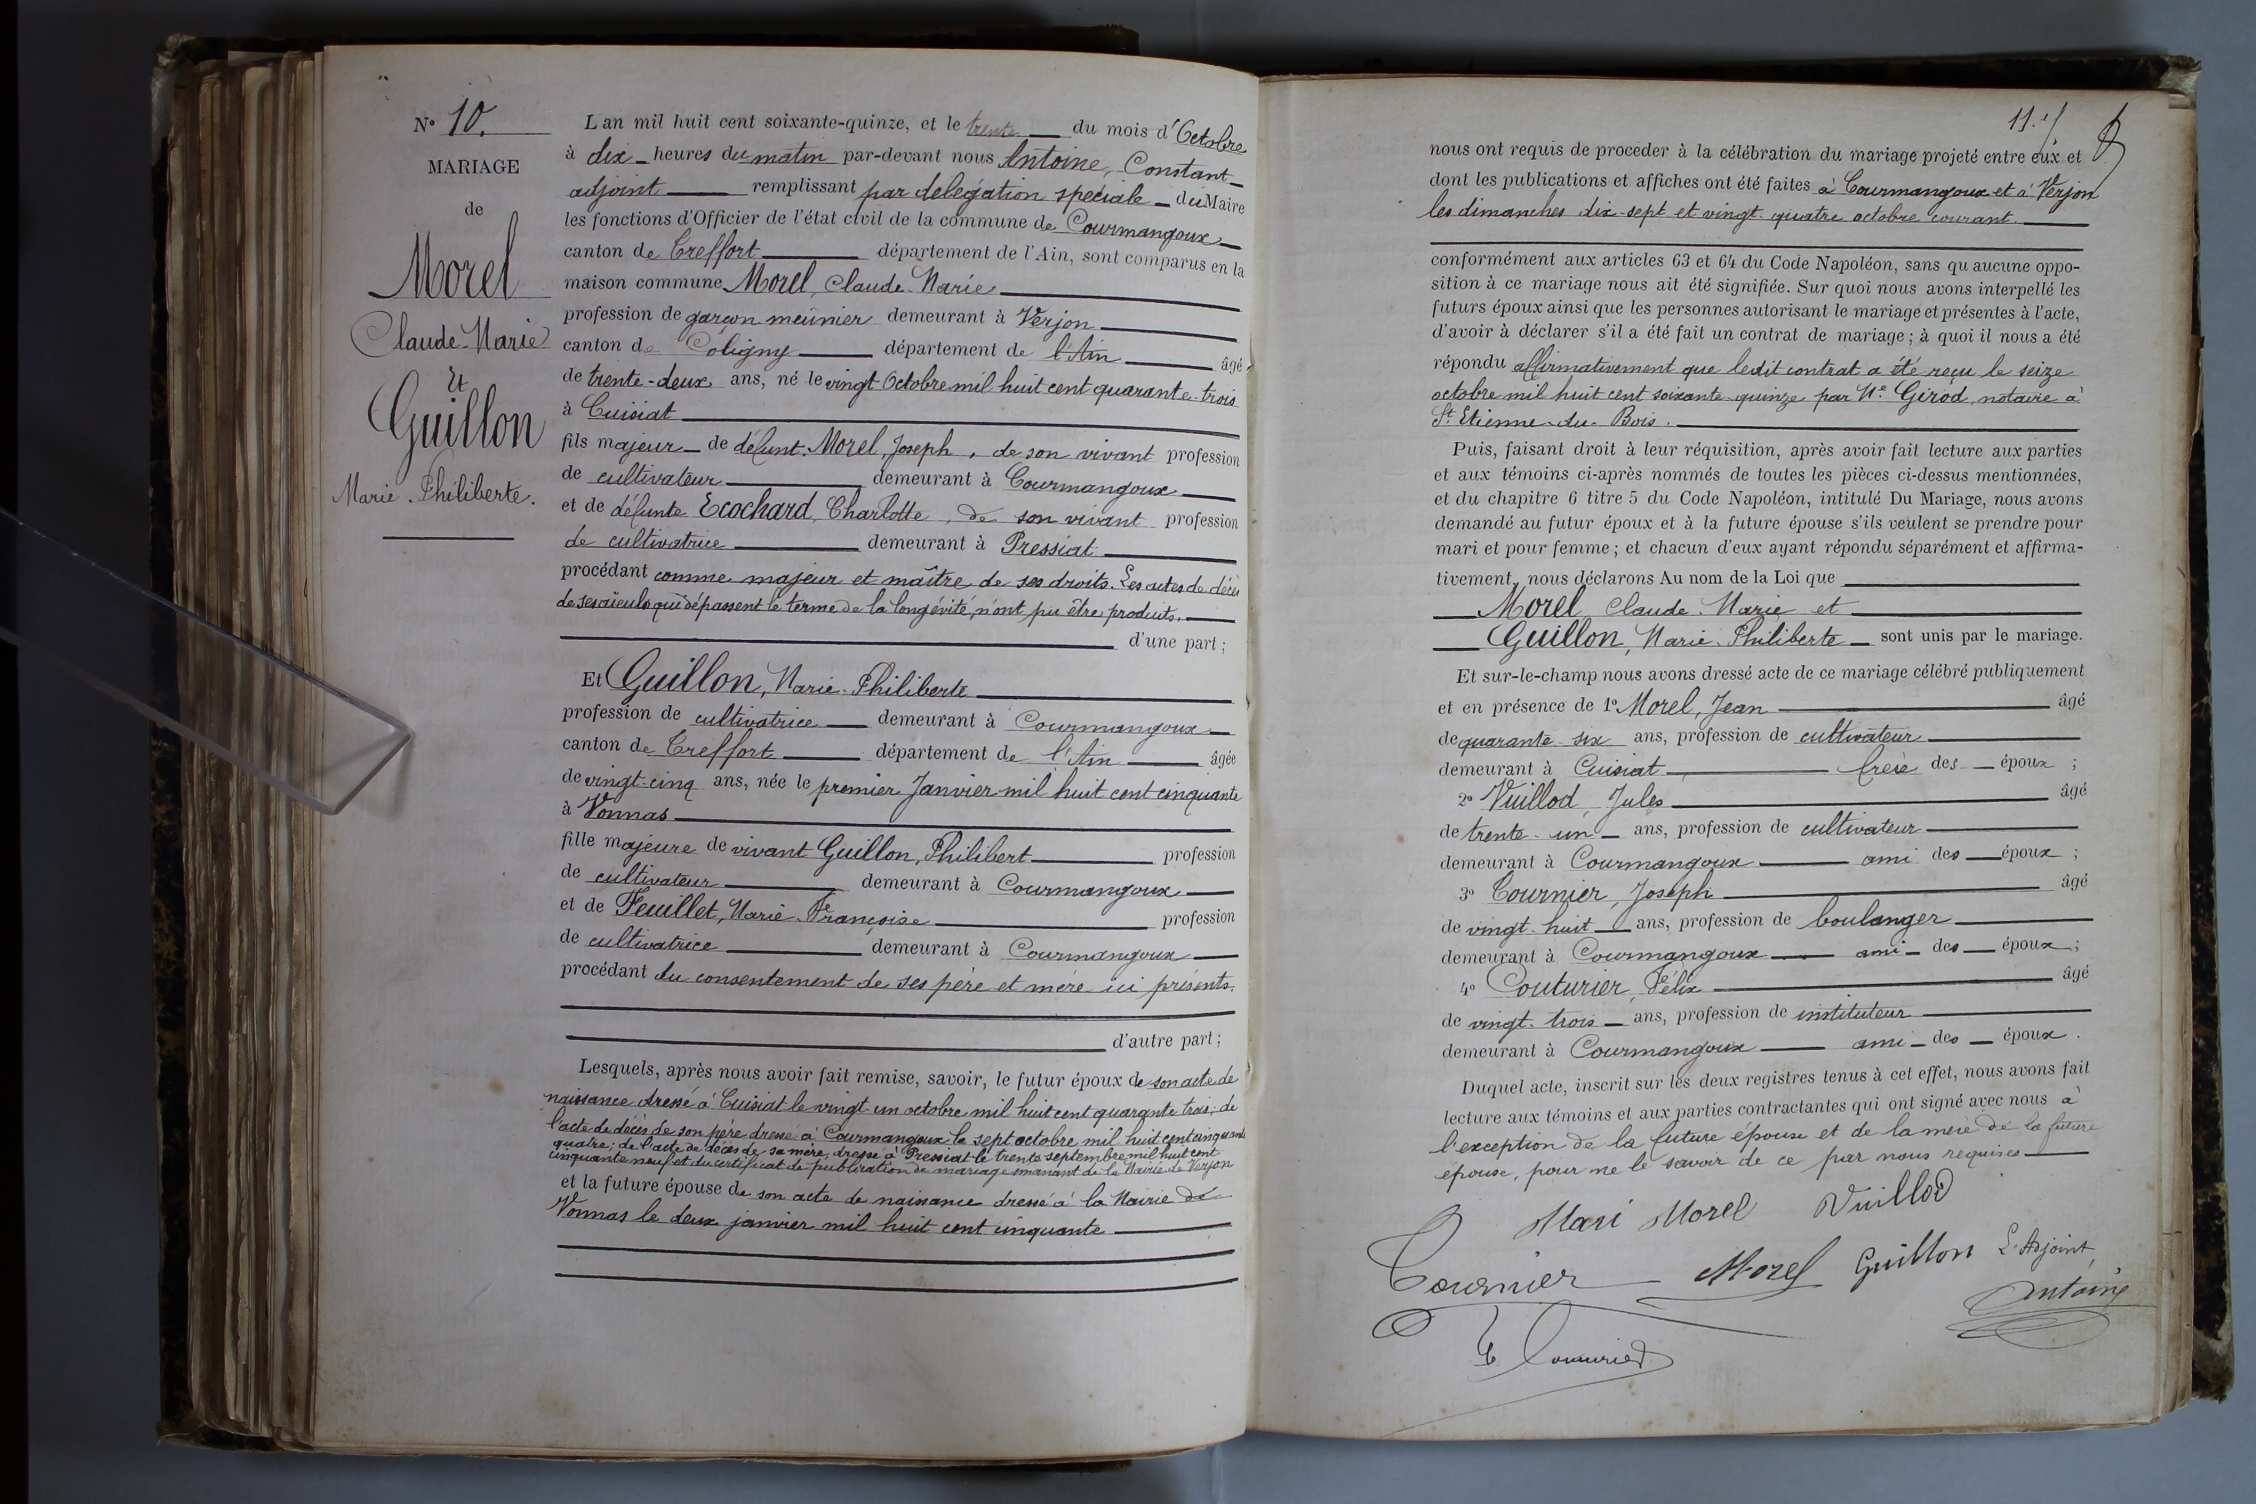 N° 10.
MARIAGE
de
Morel
Claude-Marie
Et
Guillon
Marie-Philiberte.
L'an mil huit cent soixante-quinze, et le trente du mois d'Octobre
à dix heures du matin par-devant nous Antoine, Constant
adjoint remplissant par délégation spéciale du Maire
les fonctions d'Officier de l'état civil de la commune de Courmangoux
canton de Treffort département de l'Ain, sont comparus en la
maison commune Morel, Claude-Marie
profession de garçon meunier demeurant à Verjon
canton de Coligny département de l'Ain âgé
de trente-deux ans, né le vingt Octobre mil huit cent quarante-trois
à Cuisiat
fils majeur de défunt Morel, Joseph, de son vivant profession
de cultivateur demeurant à Courmangoux
et de défunte Ecochard, Charlotte, de son vivant profession
de cultivatrice demeurant à Pressiat
procédant comme majeur et maître de ses droits. Les actes de décès
de ses aïeuls qui dépassent le terme de la longévité, n'ont pu être produits.
d'une part;
Et Guillon, Marie-Philiberte
profession de cultivatrice demeurant à Courmangoux
canton de Treffort département de l'Ain âgée
de vingt-cinq ans, née le premier Janvier mil huit cent cinquante
à Vonnas
fille majeure de vivant Guillon, Philibert profession
de cultivateur demeurant à Courmangoux
et de Feuillet, Marie-Françoise profession
de cultivatrice demeurant à Courmangoux
procédant du consentement de ses père et mère ici présents.
d'autre part;
Lesquels, après nous avoir fait remise, savoir, le futur époux de son acte de
naissance dressé à Cuisiat le vingt un octobre mil huit cent quarante trois; de
l'acte de décès de son père dressé à Courmangoux le sept octobre mil huit cent cinquante
quatre; de l'acte de décès de sa mère, dressé à Pressiat le trente septembre mil huit cent
cinquante neuf et du certificat de publication de mariage émanant de la Mairie de Verjon
et la future épouse de son acte de naissance dressé à la Mairie de
Vonnas le deux janvier mil huit cent cinquante
11.
nous ont requis de procéder à la célébration du mariage projeté entre eux et
dont les publications et affiches ont été faites à Courmangoux et à Verjon
les dimanches dix-sept et vingt-quatre octobre courant.
conformément aux articles 63 et 64 du Code Napoléon, sans qu'aucune oppo-
sition à ce mariage nous ait été signifiée. Sur quoi nous avons interpellé les
futurs époux ainsi que les personnes autorisant le mariage et présentes à l'acte,
d'avoir à déclarer s'il a été fait un contrat de mariage; à quoi il nous a été
répondu affirmativement que ledit contrat a été reçu le seize
octobre mil huit cent soixante-quinze par Me Girod, notaire à
St Etienne-du-Bois.
Puis, faisant droit à leur réquisition, après avoir fait lecture aux parties
et aux témoins ci-après nommés de toutes les pièces ci-dessus mentionnées,
et du chapitre 6 titre 5 du Code Napoléon, intitulé Du Mariage, nous avons
demandé au futur époux et à la future épouse s'ils veulent se prendre pour
mari et pour femme; et chacun d'eux ayant répondu séparément et affirma-
tivement, nous déclarons Au nom de la Loi que
Morel, Claude-Marie et
Guillon, Marie-Philiberte sont unis par le mariage.
Et sur-le-champ nous avons dressé acte de ce mariage célébré publiquement
et en présence de 1° Morel, Jean âgé
de quarante-six ans, profession de cultivateur
demeurant à Cuisiat frère des époux;
2° Vuillod Jules âgé
de trente-un ans, profession de cultivateur
demeurant à Courmangoux ami des époux;
3° Tournier, Joseph âgé
de vingt-huit ans, profession de boulanger
demeurant à Courmangoux ami des époux;
4° Couturier, Félix âgé
de vingt-trois ans, profession de instituteur
demeurant à Courmangoux ami des époux.
Duquel acte, inscrit sur les deux registres tenus à cet effet, nous avons fait
lecture aux témoins et aux parties contractantes qui ont signé avec nous à
l'exception de la future épouse et de la mère de la future
épouse, pour ne le savoir de ce par nous requises
Mari Morel Vuillod
Tournier Morel Guillon L'Adjoint,
Antoine